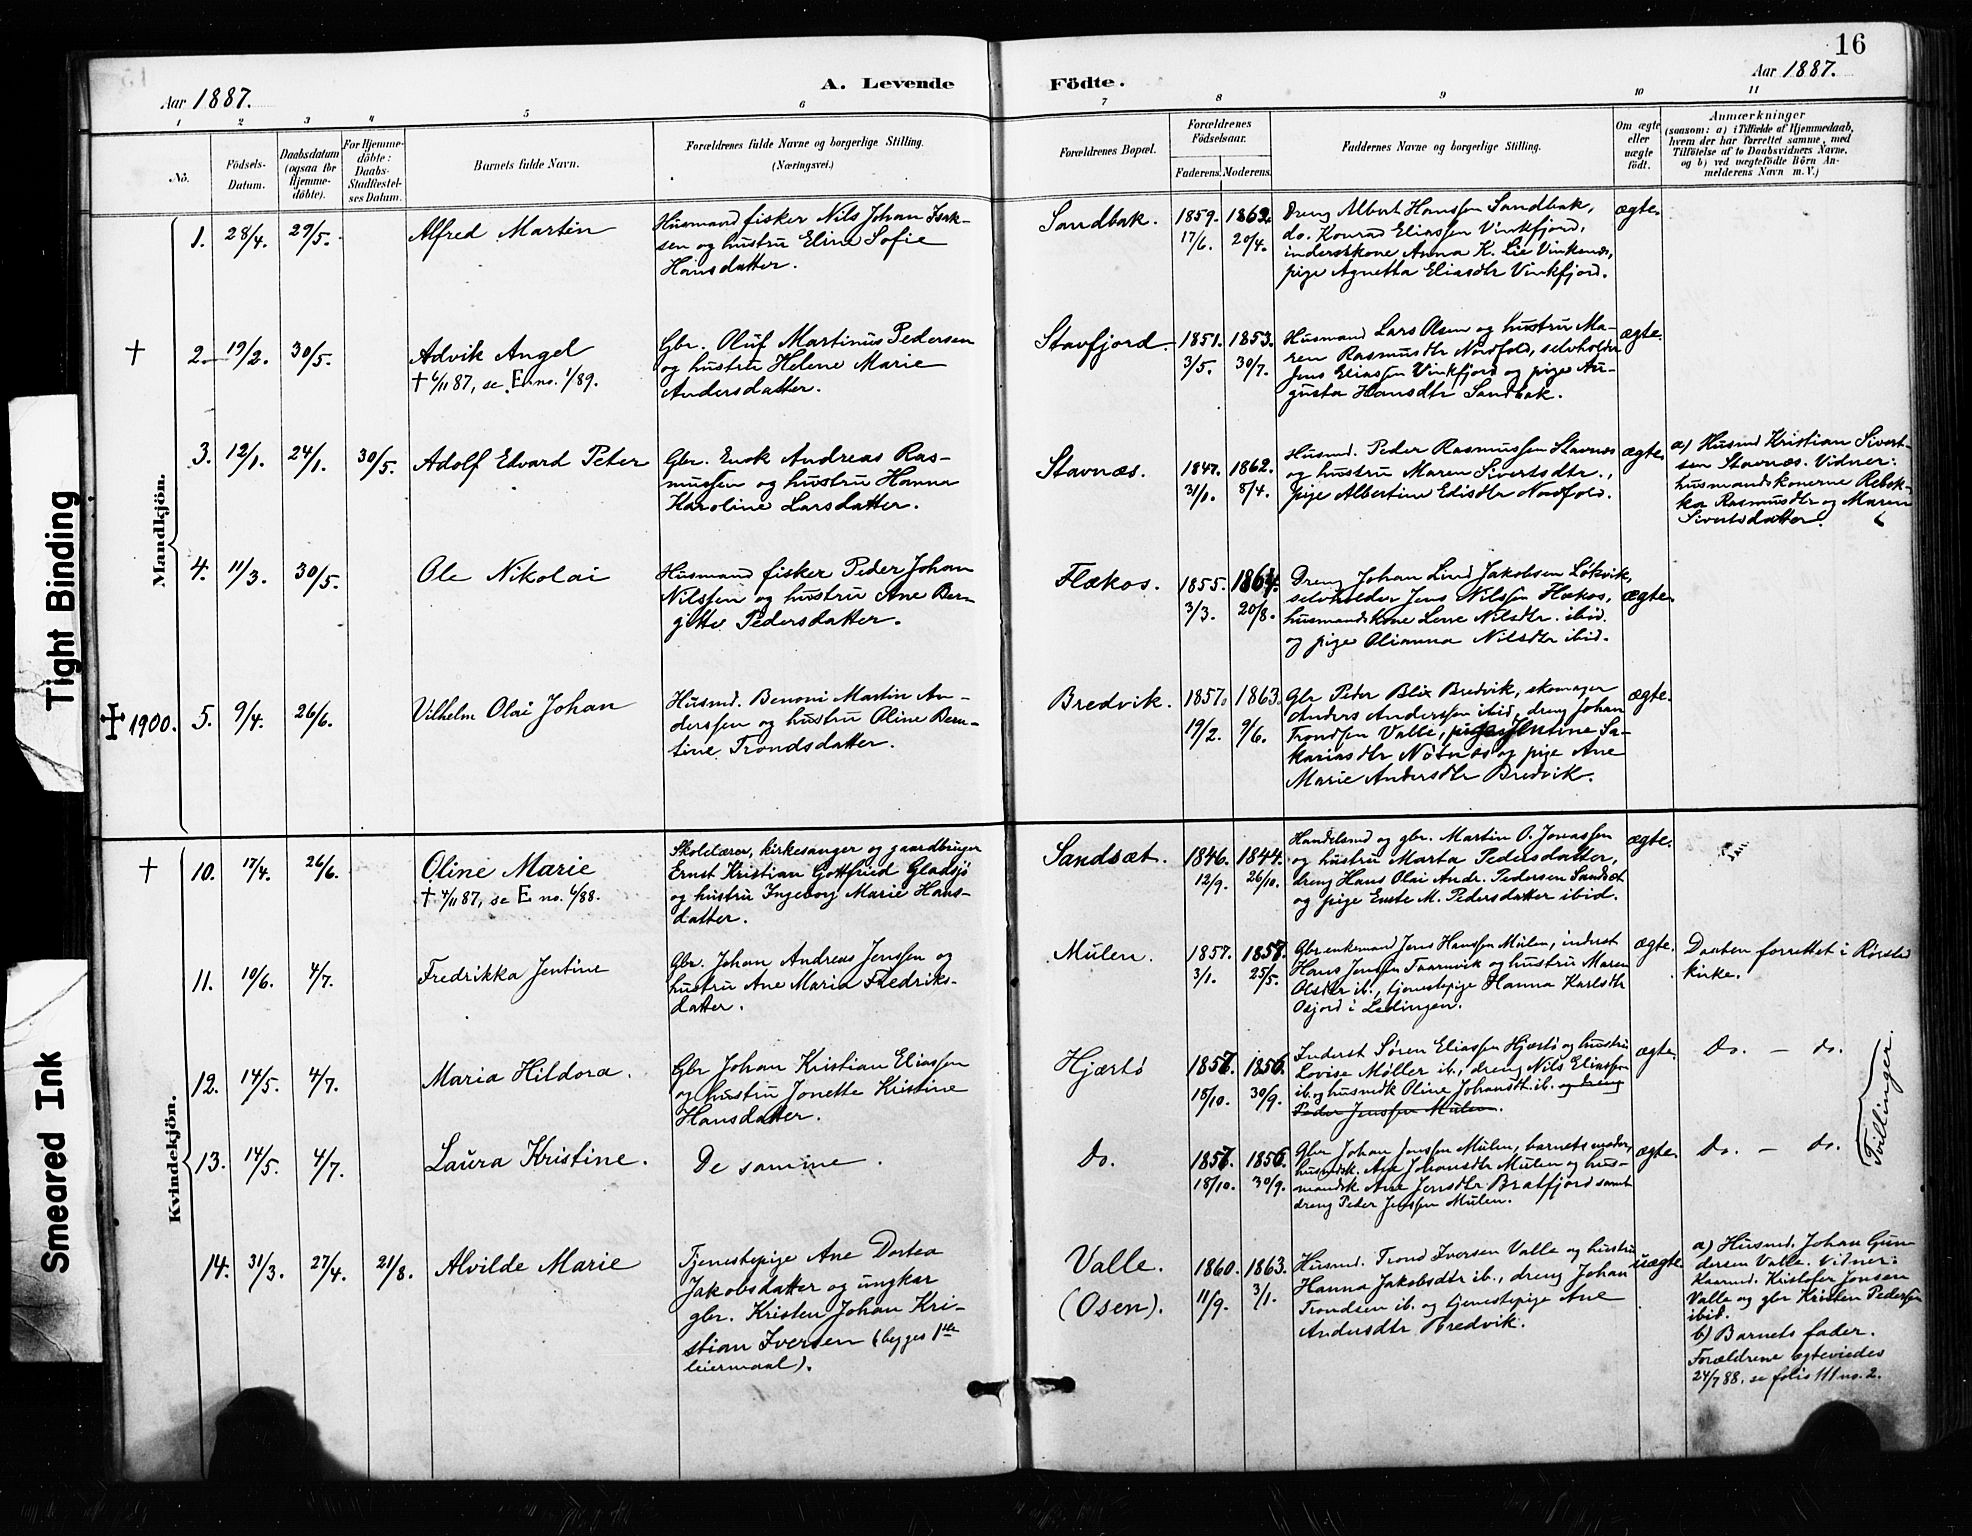 16
Aar 1887.
A. Levende Födte.
Aar 1887.
1 2 3 4 5 6 7 8 9 10 11
No.
Födsels-Datum.
Daabsdatum (ogsaa for Hjemme-döbte).
For Hjemme-döbte: Daabs-Stadfæstel-ses Datum.
Barnets fulde Navn.
Forældrenes fulde Navne og borgerlige Stilling.
(Næringsvei.)
Forældrenes Bopæl.
Forældrenes Födselsaar.
Faderens. Moderens.
Faddernes Navne og borgerlige Stilling.
Om ægte eller uægte födt.
Anmærkninger
(saasom: a) i Tilfælde af Hjemmedaab,
hvem der har forrettet samme, med
Tilföielse af to Daabsvidners Navne,
og b) ved uægtefödte Börn An-
melderens Navn m. V.)
Mandkjön.
1. 28/4. 29/5.
Alfred Martin
Husmand fisker Nils Johan Isak-
sen og hustru Eline Sofie
Hansdatter.
Sandbak.
1859. 17/6.
1862. 20/4.
Dreng Albert Hanssen Sandbak,
do. Konrad Eliassen Vinkfjord,
inderstkone Anna K. Lie Vinkenes,
pige Agnetta Eliasdtr Vinkfjord.
ægte.
† 2. 19/2. 30/5.
Advik Angel
† 6/11 87, se E. no. 1/89.
Gbr. Oluf Martinus Pedersen
og hustru Helene Marie
Andersdatter.
Stavfjord.
1851. 3/5.
1853. 30/7.
Husmand Lars Olsen og hustru Ma-
ren Rasmusdtr Nordfold, selvholder
Jens Eliassen Vinkfjord og pige Au-
gusta Hansdtr Sandbak.
ægte.
3. 12/1. 24/1. 30/5.
Adolf Edvard Peter
Gbr. Enok Andreas Ras-
mussen og hustru Hanna
Karoline Larsdatter.
Stavnæs.
1847. 31/1.
1862. 8/4.
Husmd. Peder Rasmussen Stavnæs
og hustru Maren Sivertsdtr.,
pige Albertine Edisdtr Nordfold.
ægte.
a) Husmd Kristian Sivert-
sen Stavnæs. Vidner:
husmandskonerne Rebek-
ka Rasmusdtr og Maren
Sivertsdatter.
4. 11/3. 30/5.
Ole Nikolai
Husmand fisker Peder Johan
Nilssen og hustru Ane Ber-
gitte Pedersdatter.
Flækos.
1855. 3/3.
1864. 20/8.
Dreng Johan Lind Jakobsen Løkvik,
selvholder Jens Nilssen Flækos,
husmandskone Lene Nilsdtr. ibid.
og pige Olianna Nilsdtr ibid.
ægte.
1900. 5. 9/4. 26/6.
Vilhelm Olai Johan
Husmd. Benoni Martin An-
derssen og hustru Oline Bern-
tine Trondsdatter.
Bredvik.
1857. 19/2.
1863. 9/6.
Gbr Peder Blix Bredvik, skomager
Anders Anderssen ibid, dreng Johan
Trondsen Valle, pige Jentine Sa-
kariasdtr Nøtnes og pige Ane
Marie Andersdtr Bredvik.
ægte.
Kvindekjön.
† 10. 17/4. 26/6.
Oline Marie
† 4/11 87, se E no. 6/88.
Skolelærer, kirkesanger og gaardbruger
Ernst Kristian Gottfried Gladsjø
og hustru Ingeborg Marie Hans-
datter.
Sandsæt.
1846. 12/9.
1844. 26/10.
Handelsmd og gbr. Martin O. Jonassen
og hustru Marta Pedersdatter,
dreng Hans Olai Andr. Pedersen Sandsæt
og pige Enste M. Pedersdatter ibid.
ægte.
11. 10/6. 4/7.
Fredrikka Jentine
Gbr. Johan Andreas Jenssen og
hustru Ane Maria Fredriks-
datter.
Mulen.
1857. 3/1.
1857. 25/5.
Gbr enkemand Jens Hanssen Mulen, inderst
Hans Jenssen Taarnvik og hustru Maren
Olsdtr ib., tjenestepige Hanna Karlsdtr
Osjord i Lødingen.
ægte.
Daaben forrettet i Rørstad
kirke.
12. 14/5. 4/7.
Maria Hildora.
Gbr Johan Kristian Eliassen
og hustru Jonette Kristine
Hansdatter.
Hjærtø
1857. 18/10.
1856. 30/9.
Inderst Søren Eliassen Hjærtø og hustru
Lovise Møller ib., dreng Nils Eliassen
ib. og husmdk Oline Johansdt. ib. og dreng
Peder Jenssen Mulen.
ægte.
Do. — do.
Tvillinger.
13. 14/5. 4/7.
Laura Kristine.
De samme.
Do.
1857. 18/10.
1856. 30/9.
Gbr Johan Jenssen Mulen, barnets moder,
husmdsk. Ane Johansdtr Mulen og hus-
mandsk Ane Jensdtr Bratfjord samt
dreng Peder Jenssen Mulen.
ægte.
Do. — do.
14. 31/3. 27/4. 21/8.
Alvilde Marie
Tjenestepige Ane Dortea
Jakobsdatter og ungkar
gbr. Kristen Johan Kri-
stian Iversen (begges 1ste
leiermaal).
Valle.
(Osen).
1860. 11/9.
1863. 3/1.
Husmd. Trond Iversen Valle og hustru
Hanna Jakobsdtr ib., dreng Johan
Trondsen ib. og tjenestepige Ane
Andersdtr Bredvik.
uægte.
a) Husmd. Johan Gun-
dersen Valle. Vidner:
Kaarmd. Kristofer Jonsen
Valle og gbr Kristen Pedersen
ibid.
b) Barnets fader.
Forældrene ægteviedes
24/7 88, se folio 111 no. 2.
Tight Binding
Smeared Ink